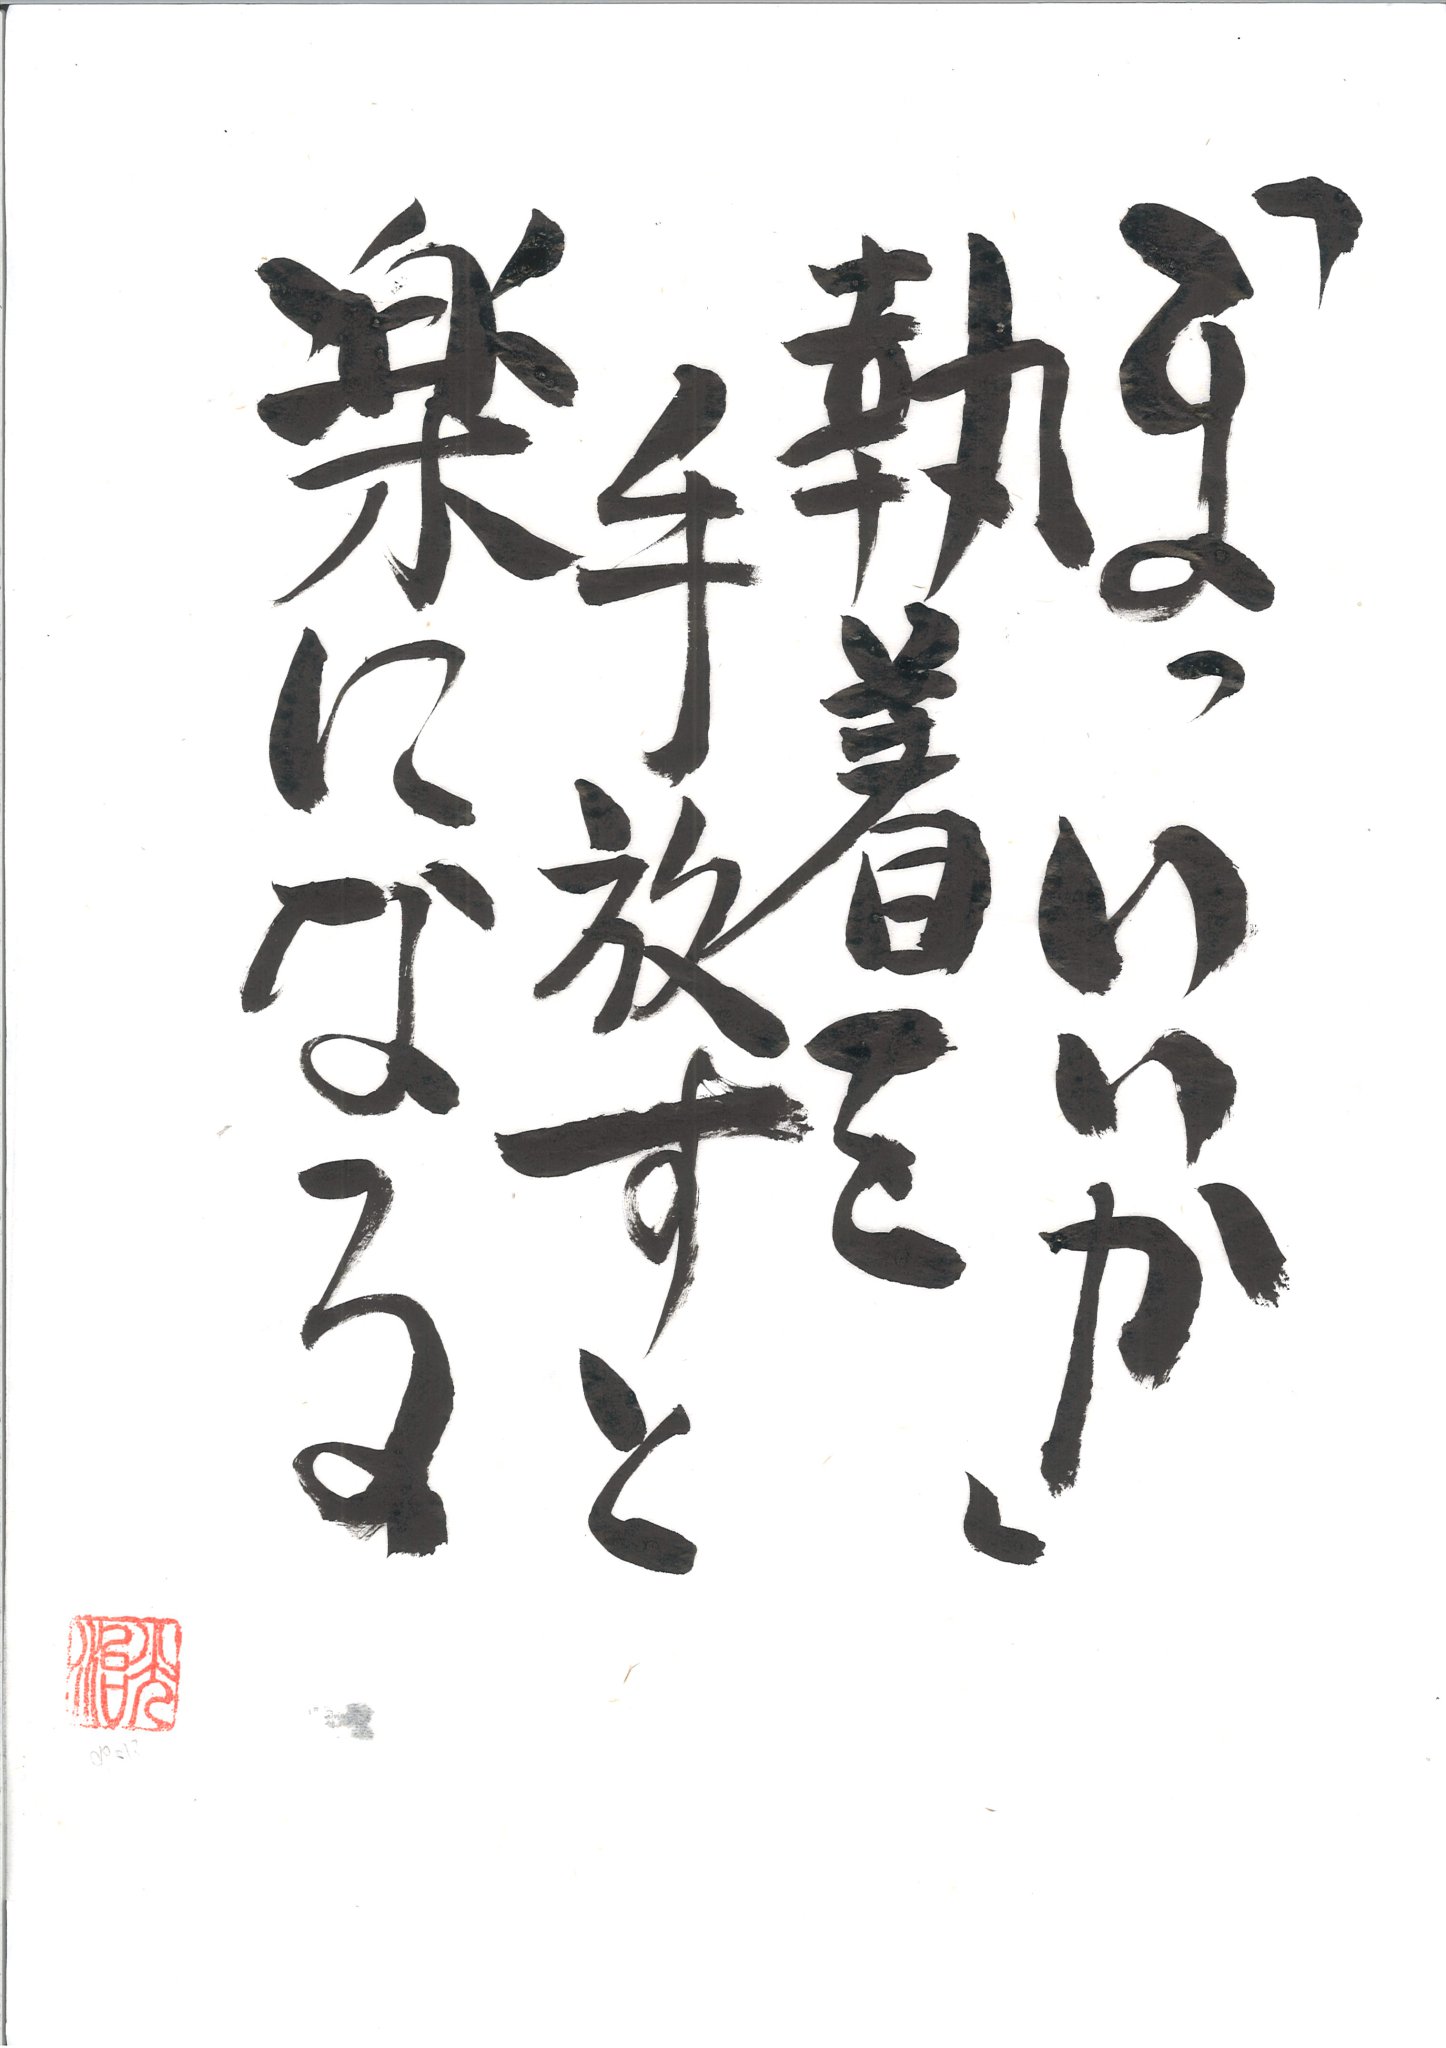 「まっいいか」
執着を
手放すと
楽になる